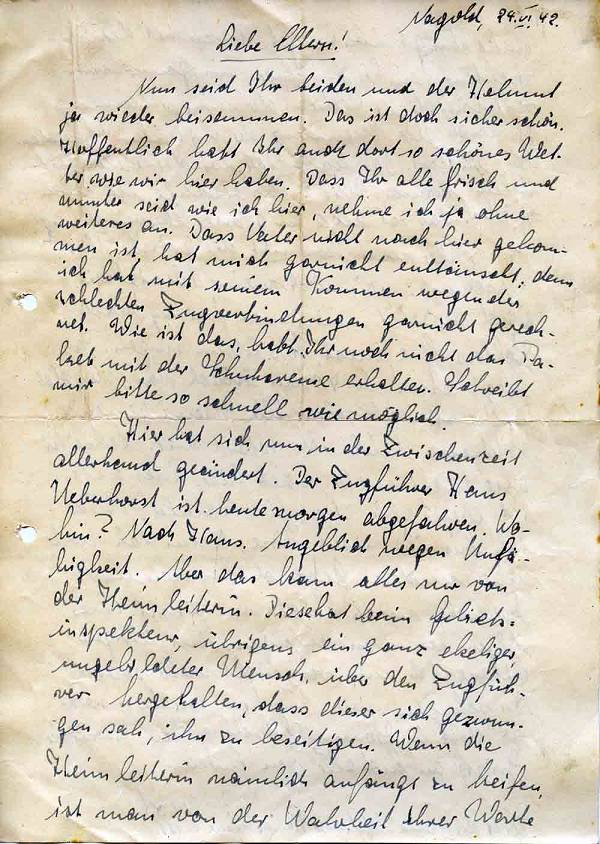 Nagold, 24.VI.42.
Liebe Eltern!
Nun seid Ihr beiden und der Helmut
ja wieder beisammen. Das ist doch sicher schön.
Hoffentlich habt Ihr auch dort so schönes Wet-
ter, wie wir hier haben. Dass Ihr alle frisch und
munter seid wie ich hier, nehme ich ja ohne
weiteres an. Dass Vater nicht nach hier gekom-
men ist, hat mich garnicht enttäuscht, denn
ich hat mit seinem Kommen wegen der
schlechten Zugverbindungen garnicht gerech-
net. Wie ist das, habt Ihr noch nicht das Pa-
ket mit der Schuhcreme erhalten. Schreibt
mir bitte so schnell wie möglich.
Hier hat sich nun in der Zwischenzeit
allerhand geändert. Der Zugführer Hans
Ueberhorst ist heute morgen abgefahren. Wo-
hin? Nach Haus. Angeblich wegen Unfä-
higkeit. Aber das kam alles nur von
der Heimleiterin. Diese hat beim
inspekteur, übrigens ein ganz ekeliger,
ungebildeter Mensch, über den Zugfüh-
rer hergehalten, dass dieser sich gezwun-
gen sah, ihn zu beseitigen. Wenn die
Heimleiterin nämlich anfängt zu keifen,
ist man von der Wahrheit ihrer Worte